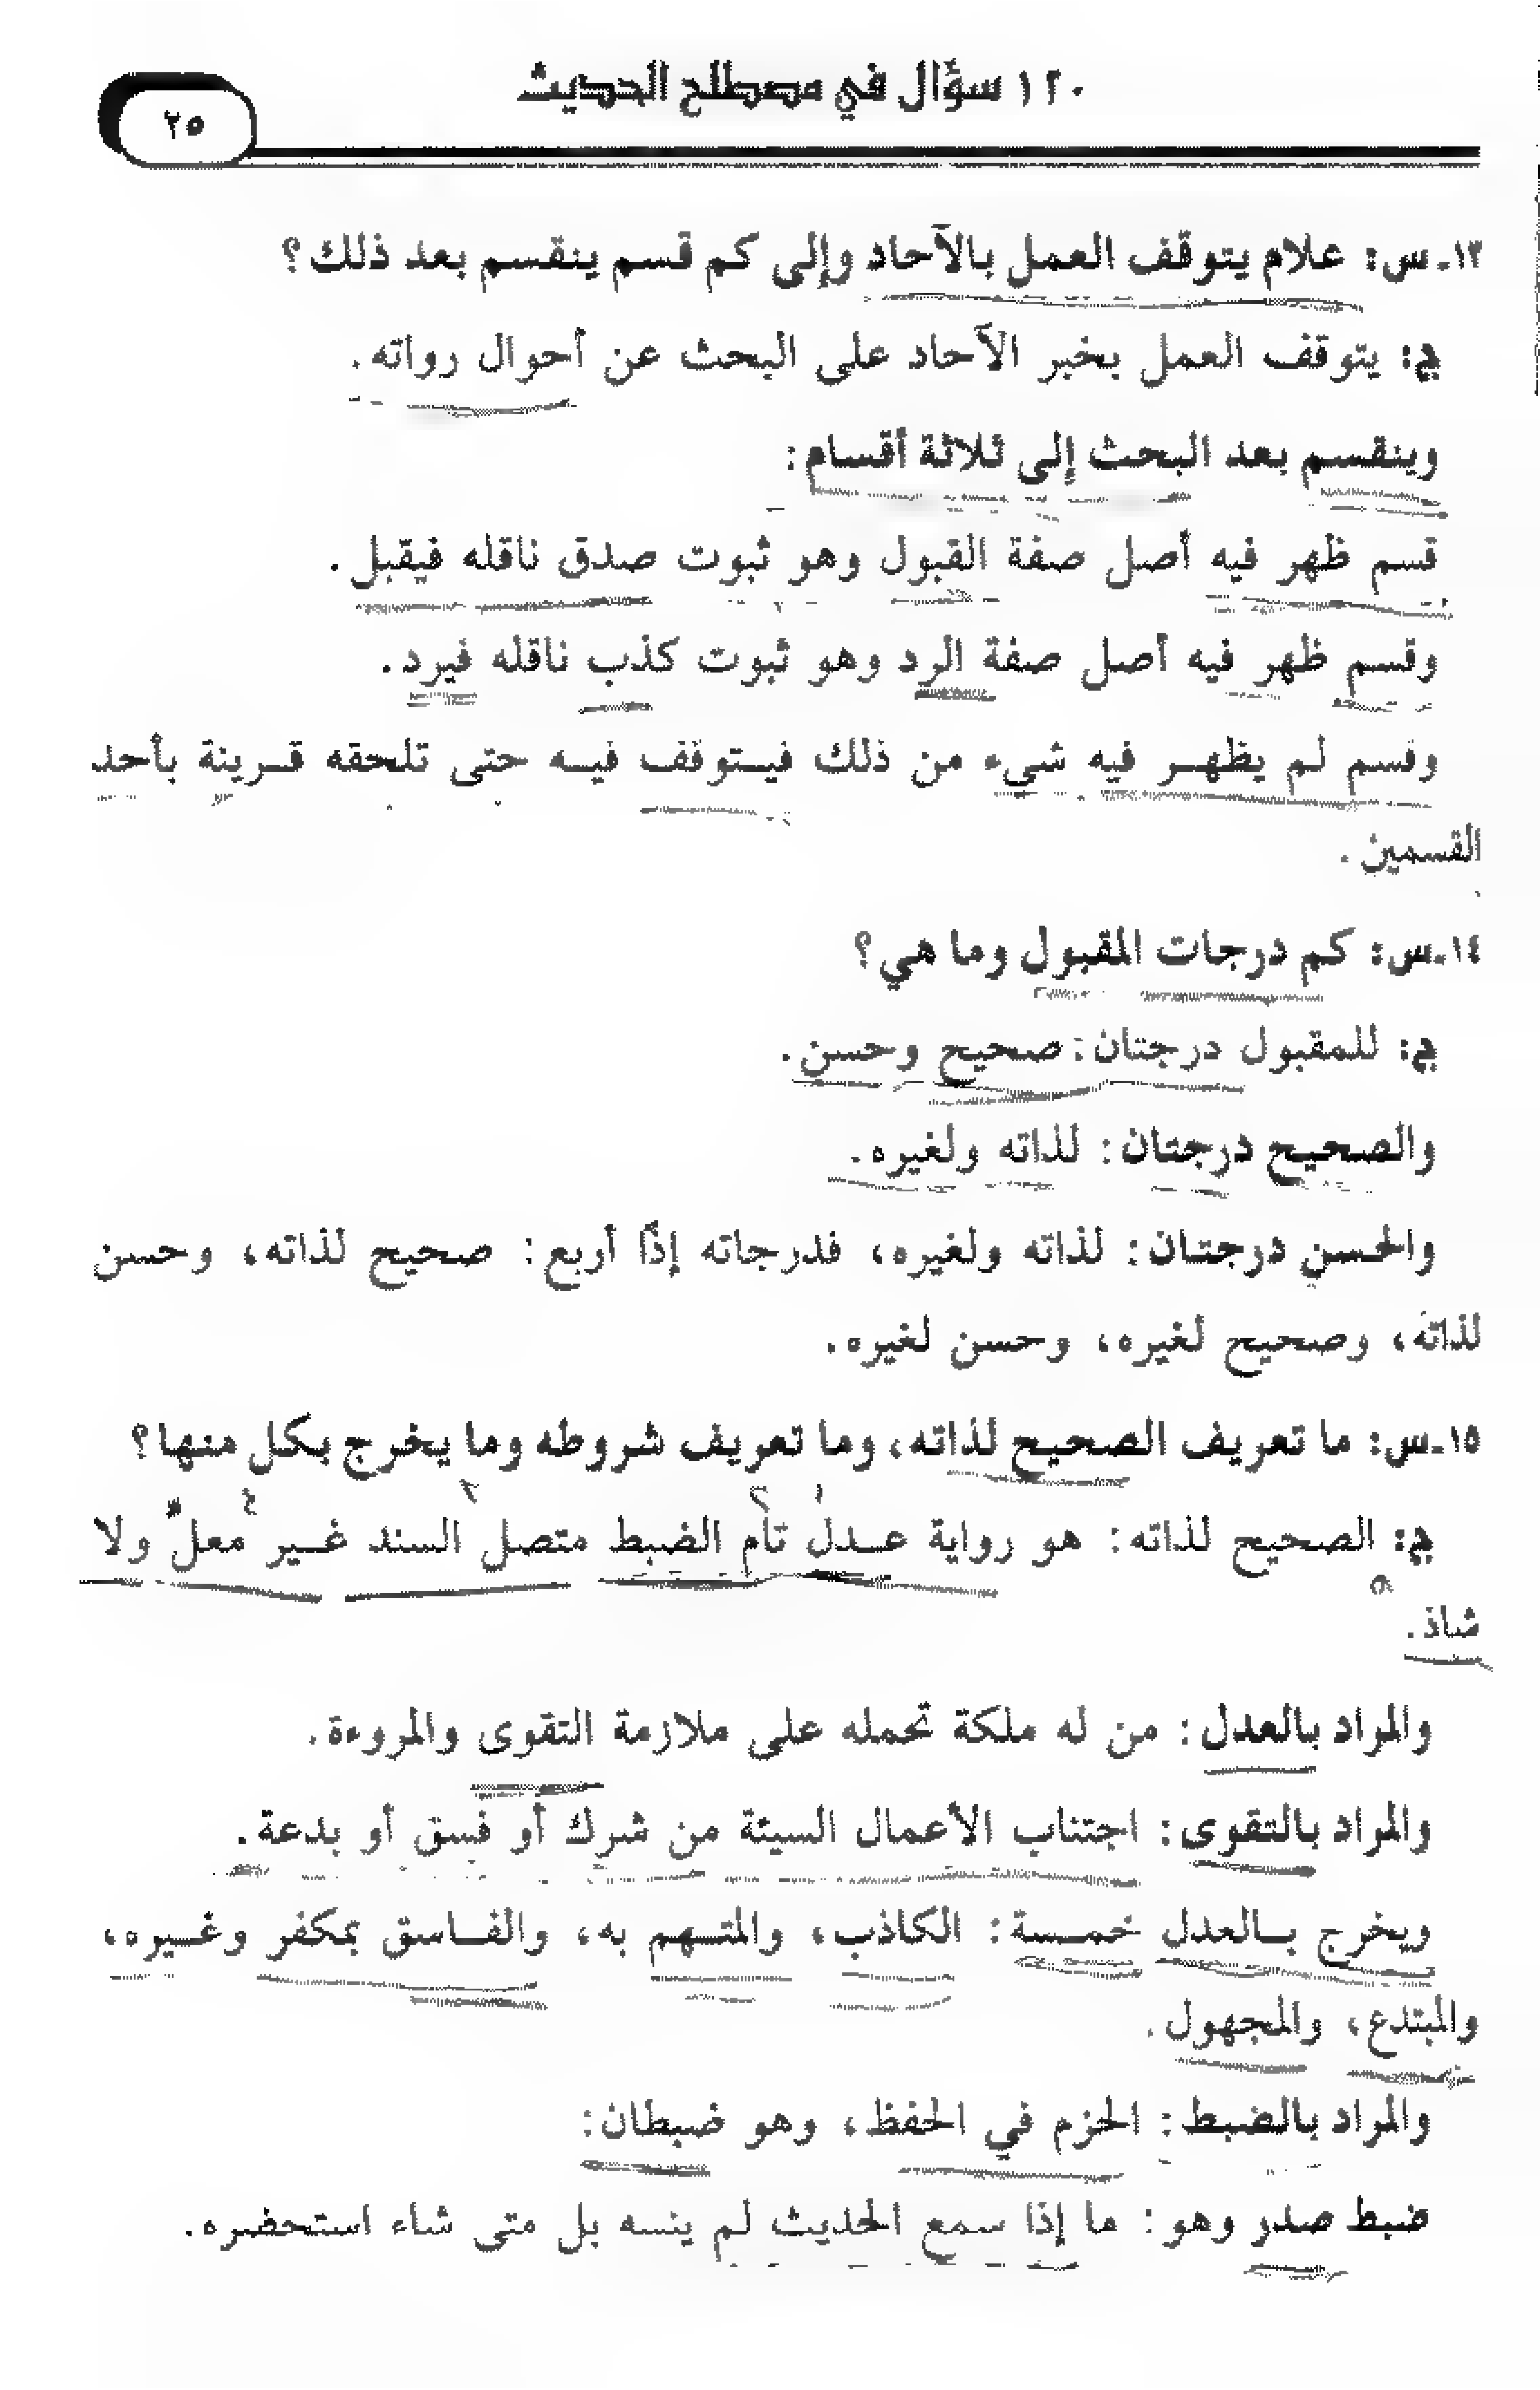 ١٢٠ سؤال في مصطلح الحديث
٢٥
١٣ـ س: علام يتوقف العمل بالآحاد وإلى كم قسم ينقسم بعد ذلك؟
ج: يتوقف العمل بخبر الآحاد على البحث عن أحوال رواته.
وينقسم بعد البحث إلى ثلاثة أقسام:
قسم ظهر فيه أصل صفة القبول وهو ثبوت صدق ناقله فيقبل.
وقسم ظهر فيه أصل صفة الرد وهو ثبوت كذب ناقله فيرد.
وقسم لم يظهر فيه شيء من ذلك فيتوقف فيه حتى تلحقه قرينة بأحد
القسمين.
١٤ـ س: كم درجات المقبول وما هي؟
ج: للمقبول درجتان: صحيح وحسن.
والصحيح درجتان: لذاته ولغيره.
والحسن درجتان: لذاته ولغيره، فدرجاته إذًا أربع: صحيح لذاته، وحسن
لذاته، وصحيح لغيره، وحسن لغيره.
١٥ـ س: ما تعريف الصحيح لذاته، وما تعريف شروطه وما يخرج بكل منها؟
١ ٢ ٣ ٤
ج: الصحيح لذاته: هو رواية عدل تام الضبط متصل السند غير معلّ ولا
٥
شاذ.
والمراد بالعدل: من له ملكة تحمله على ملازمة التقوى والمروءة.
والمراد بالتقوى: اجتناب الأعمال السيئة من شرك أو فسق أو بدعة.
ويخرج بالعدل خمسة: الكاذب، والمتهم به، والفاسق بمكفر وغيره،
والمبتدع، والمجهول.
والمراد بالضبط: الحزم في الحفظ، وهو ضبطان:
ضبط صدر وهو: ما إذا سمع الحديث لم ينسه بل متى شاء استحضره.